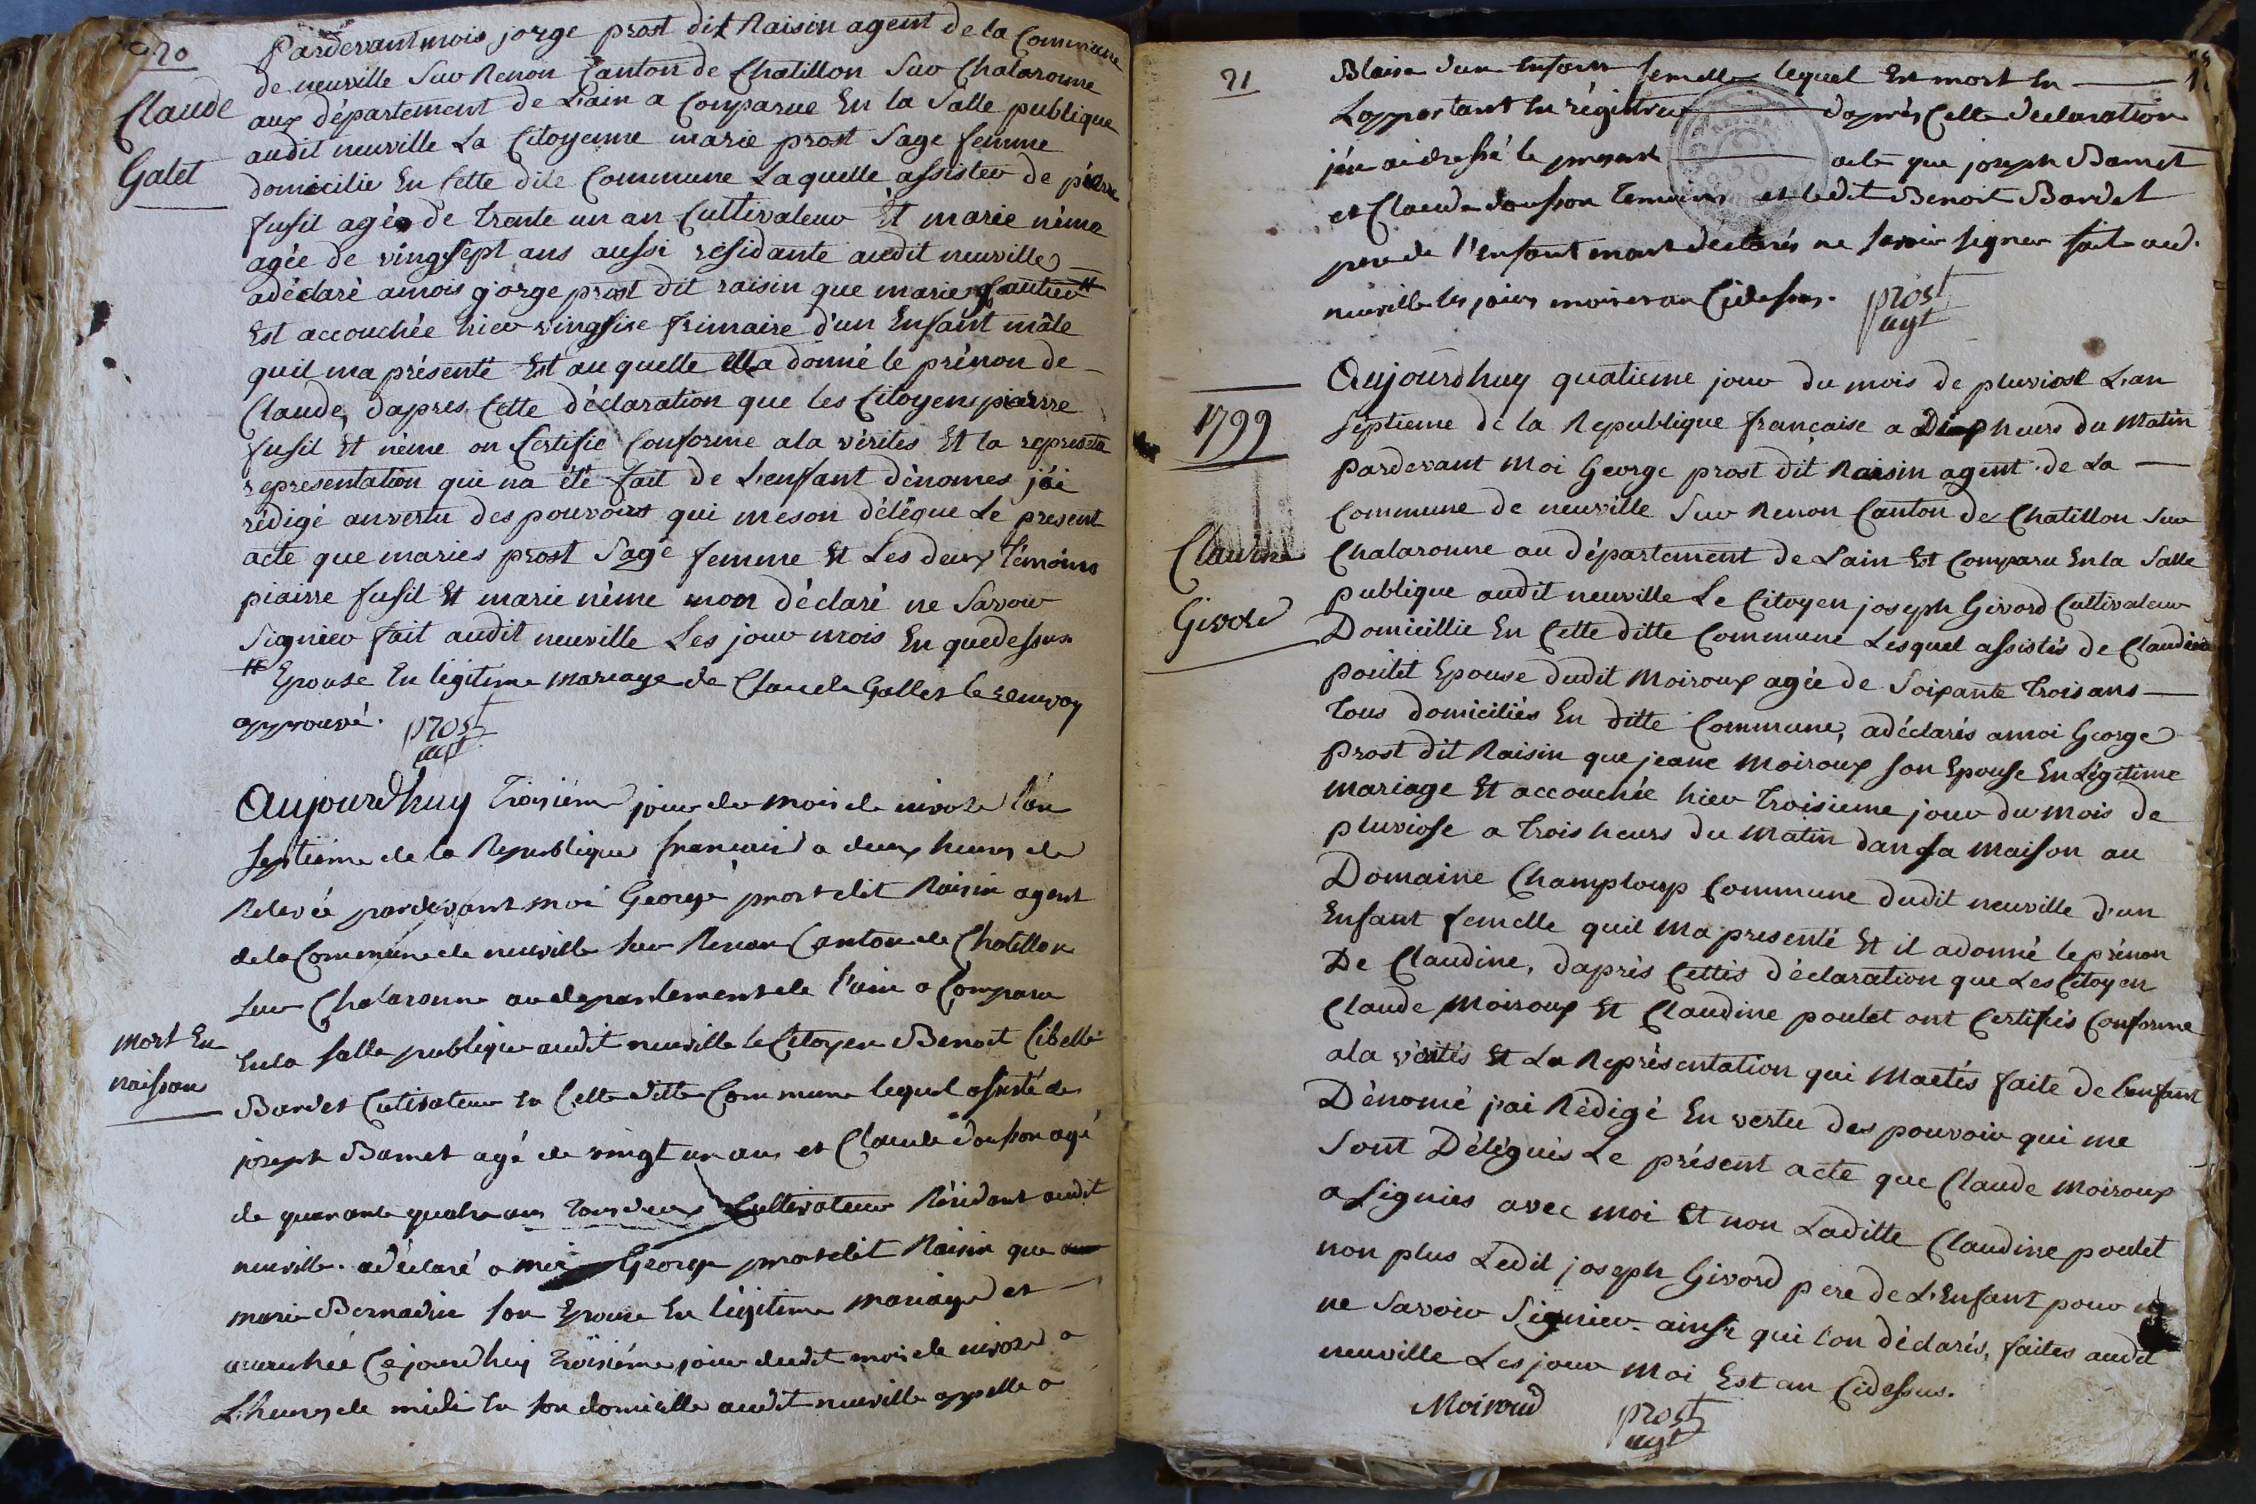 20
Pardevant mois jorge prost dit Raisin agent de la Commune
de neuville Sur Renon Canton de Chatillon Sur Chalaronne
Claude
aux département de L'ain a Comparue En la Salle publique
audit neuville La Citoyenne marie prost Sage femme
Galet
domicilie En Cette dite Commune Laquelle assister de piérre
fusil agés de trente un an Cultivateur Et marie nème
agée de vingsept ans aussi résidante audit neuville
adéclaré amois gorge prost dit raisin que marie gautier #
Est accouchée hier vingsise frimaire d'un Enfant mâle
quil ma présenté Est au quelle Ella donné le prénon de
Claude, dapres Cette déclaration que les Citoyens piairre
fusil Et nème on Certifie Conforme ala vérites Et la represeta
representation qui na été fait de L'enfant dénomes jéi
rédigé anvertu des pouvoirs qui meson délégue Le present
acte que maries prost Sage femme Et Les deux Témoins
piairre fusil Et marie nème mon déclaré ne Savoir
Signier fait audit neuville Les jour mois En quedessus
# Epouse En légitime mariage de Claude Gallet le renvoy
approuvé. prost
agt
Aujourd'huy Troisiéme jour du mois de nivoze l'an
septième de la Republique francais a deux heures de
Relevée pardevant moi George prost dit Raisin agent
de la Commune de neuville sur Renon Canton de Chatillon
sur Chalaronne au departement de l'ain a Comparu
mort En
naissan
En la salle publique audit neuville le Citoyen Benoit Cibelle
Bardet Cutivateur En Cette ditte Commune lequel assisté de
joseph Bamet agé de vingt un ans et Claude Dousson agé
de quarante quatre ans tous deux Cultivateur Résidant audit
neuville. a déclaré a moi George prost dit Raisin que
marie Bernadin son Epouse En légitime mariage et
accouchée Cejourd'huy Troisiéme jour dudit mois de nivoze a
L'heure de midi En son domicille audit neuville appelle a
21
Blaise d'un Enfant femelle lequel Est mort En
L'apportant En régistrer d'après Cette declaration
j'en ai dressé le present acte que joseph Bamet
et Claude dousson Temoins et ledit Benoit Bardet
pere de l'enfant mort declarés ne savoir signer fait aud.
neuville les jours mois et an Cidessus. prost
agt
Aujourdhuy quatieme jour du mois de pluviose L'an
1799
Septieme de la Republique française a Dix heurs du Matin
pardevant Moi George prost dit Raisin agent de La
Commune de neuville Sur Renon Canton de Chatillon Sur
Claudine
Chalaronne au département de Lain Est Comparu En la Salle
publique audit neuville Le Citoyen joseph Givord Cultivateur
Givord
Domicillie En Cette ditte Commune Lesquel assistés de Claudine
poulet Epouse dudit Moiroux agée de Soixante Trois ans
Tous domiciliés En ditte Commune, adéclarés amoi George
Prost dit Raisin que jeane Moiroux son Epouse En Légitime
Mariage Et accouchée hier Troisieme jour du Mois de
pluviose a Trois heurs du Matin dansa Maison au
Domaine Champloup Commune dudit neuville d'un
Enfant femelle quil Ma presenté Et il adonné le prénon
De Claudine, daprès Cettés déclaration que Les Citoyen
Claude Moiroux Et Claudine poulet ont Certifiés Conforme
ala vérités Et La Représentation qui Maétés faite de Lenfant
Dénomé j'ai Rédigé En vertu des pouvoir qui me
Sont Délégués Le présent acte que Claude Moiroux
a Signies avec moi Et non Laditte Claudine poulet
non plus Ledit joseph Givord pere de L'Enfant pour
ne Savoir Signier ainsi qui l'on déclarés, faites audit
neuville Les jour Moi Est an Cidessus.
Moiroud prost
agt